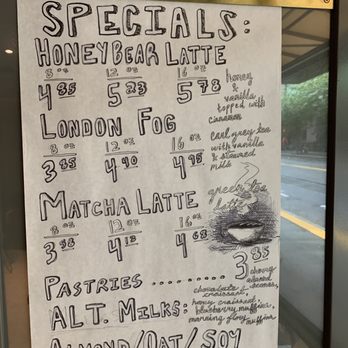 SPECIALS:
HONEYBEAR LATTE
8 oz 12 oz 16 oz
4 85 5 23 5 78
honey
&
vanilla
topped with
cinnamon
LONDON FOG
8 oz 12 oz 16 oz
3 85 4 40 4 95
earl grey tea
with vanilla
& steamed
milk
MATCHA LATTE
green tea
latte
8 oz 12 oz 16 oz
3 58 4 13 4 68
PASTRIES ......... 3 85
chocolate
croissant,
almond
ALT. MILKS:
honey croissant,
blueberry muffin,
morning glory
muffins
ALMOND/OAT/SOY